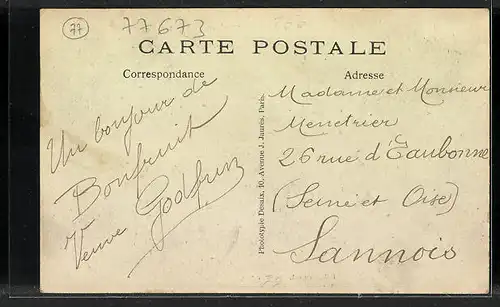 77
77673
CARTE POSTALE
Correspondance
Un bonjour de
Bonfruit
Veuve Godfrin
Phototypie Desaix, 10, Avenue J. Jaurès, Paris.
Adresse
Madame et Monsieur
Menetrier
26 rue d'Eaubonne
(Seine et Oise)
Sannois